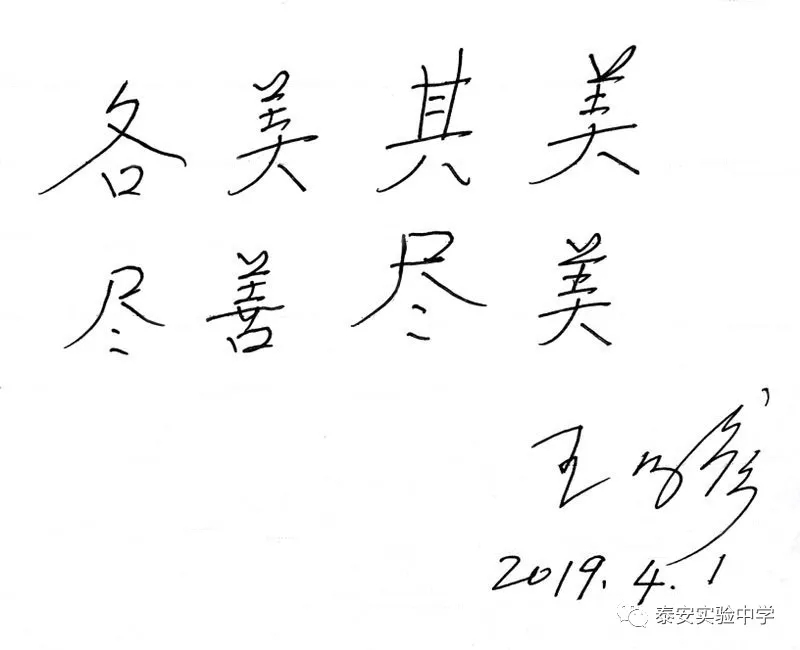 各美其美
尽善尽美
王
2019.4.1
泰安实验中学